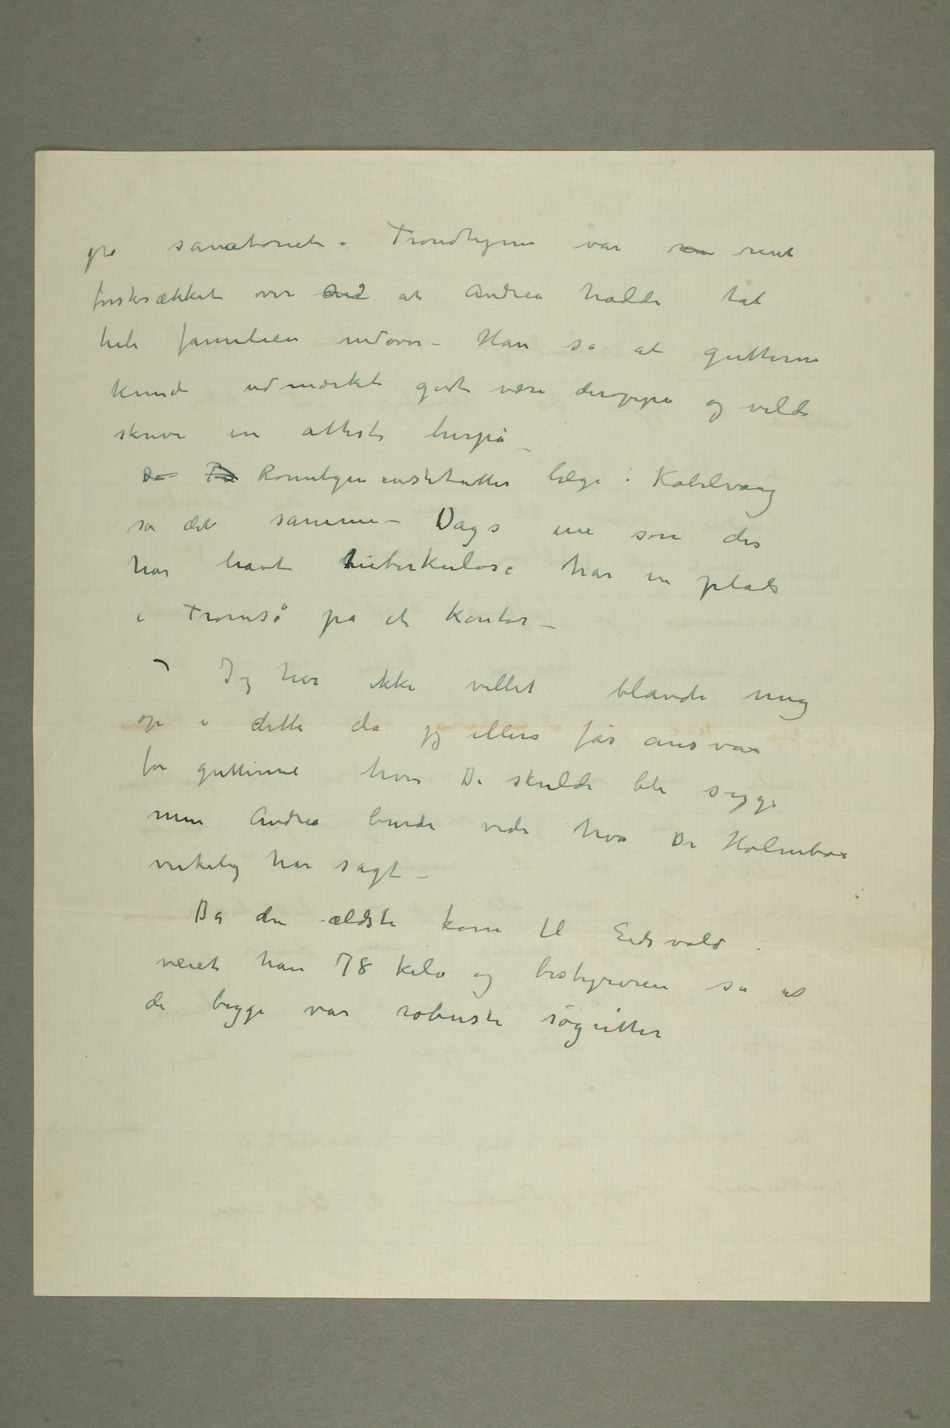 på sanatoriet. Trondhjem var rent
forskrækket over at Andrea hadde tat
hele familien nedover – Han sa at gutterne
kunde udmærket godt være deroppe og vilde
skrive en attest herpå –
Røntgeninstituttes læge i Kabelvaag
sa det samme – Dags ene søn der
har havt tuberkulose har en plads
i Tromsø på et kontor –
– Jeg har ikke villet blande mig
op i dette da jeg ellers får ansvar
for gutterne hvis De skulde bli syge
men Andrea burde vide hva Dr Holmboe
virkelig har sagt –
Da den ældste kom til Eidsvold
veiet han 78 kilo og bestyreren sa at
de begge var robuste sogutter